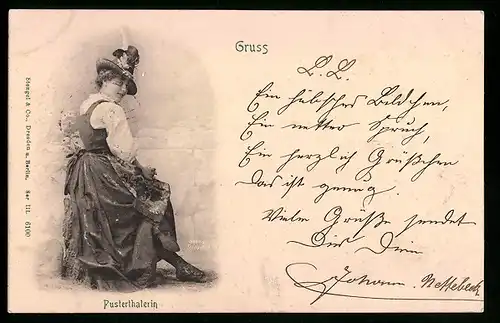 Gruss
L. L.
Ein hübsches Bildchen,
Ein netter Spruch,
Ein herzlich Grüßchen
Das ist genug.
Viele Grüße sendet
Dir Dein
Johann Nettebeck
Stengel & Co., Dresden u. Berlin. Ser III. 6100
Pusterthalerin